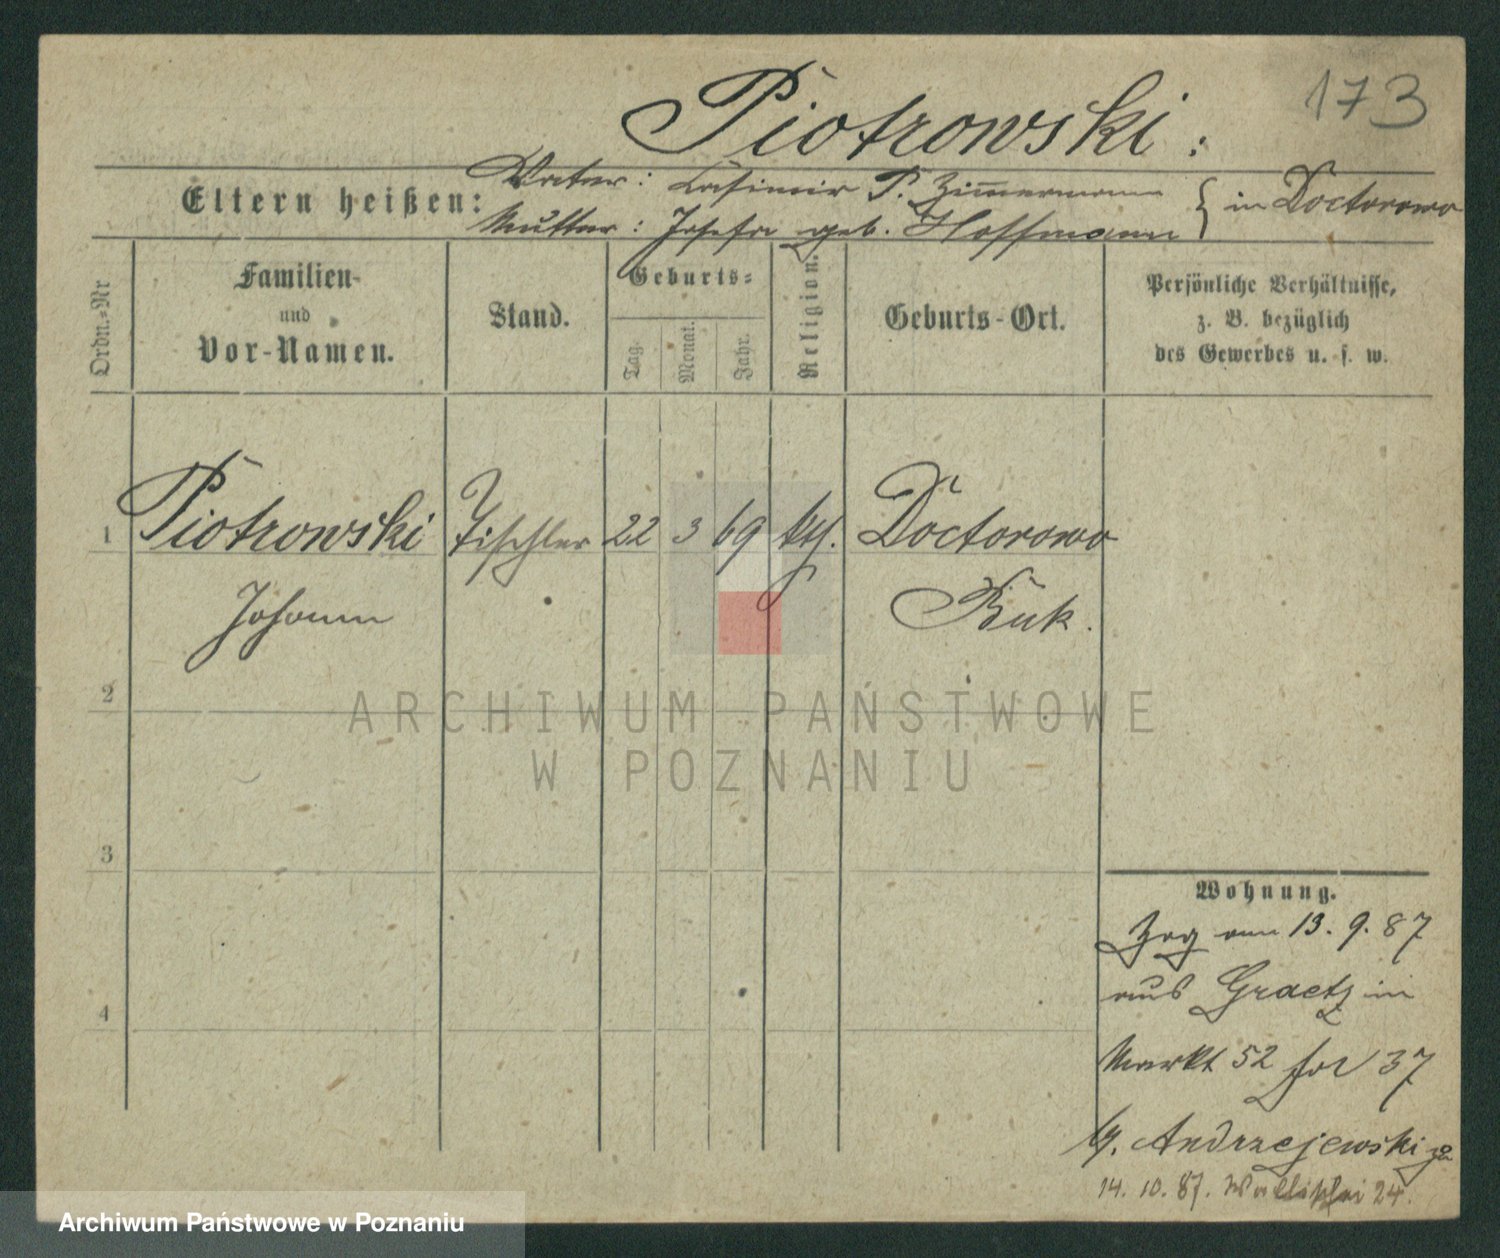 173
Piotrowski:
Eltern heißen:
Vater: Casimir P. Zimmermann
Mutter: Josefa geb. Hoffmann
} in Doctorowo
Ordn.-Nr
Familien-
und
Vor-Namen.
Stand.
Geburts-
Tag.
Monat.
Jahr.
Religion.
Geburts-Ort.
Persönliche Verhältnisse,
z. B. bezüglich
des Gewerbes u. s. w.
1 Piotrowski Tischler 22 3 69 kth. Doctorowo
Johann Buk.
2
3
4
Wohnung.
Zzg am 13. 9. 87
aus Graetz in
Markt 52 37
Andrzejewski
14. 10. 87. Wallischei 24.
ARCHIWUM PAŃSTWOWE
W POZNANIU
Archiwum Państwowe w Poznaniu